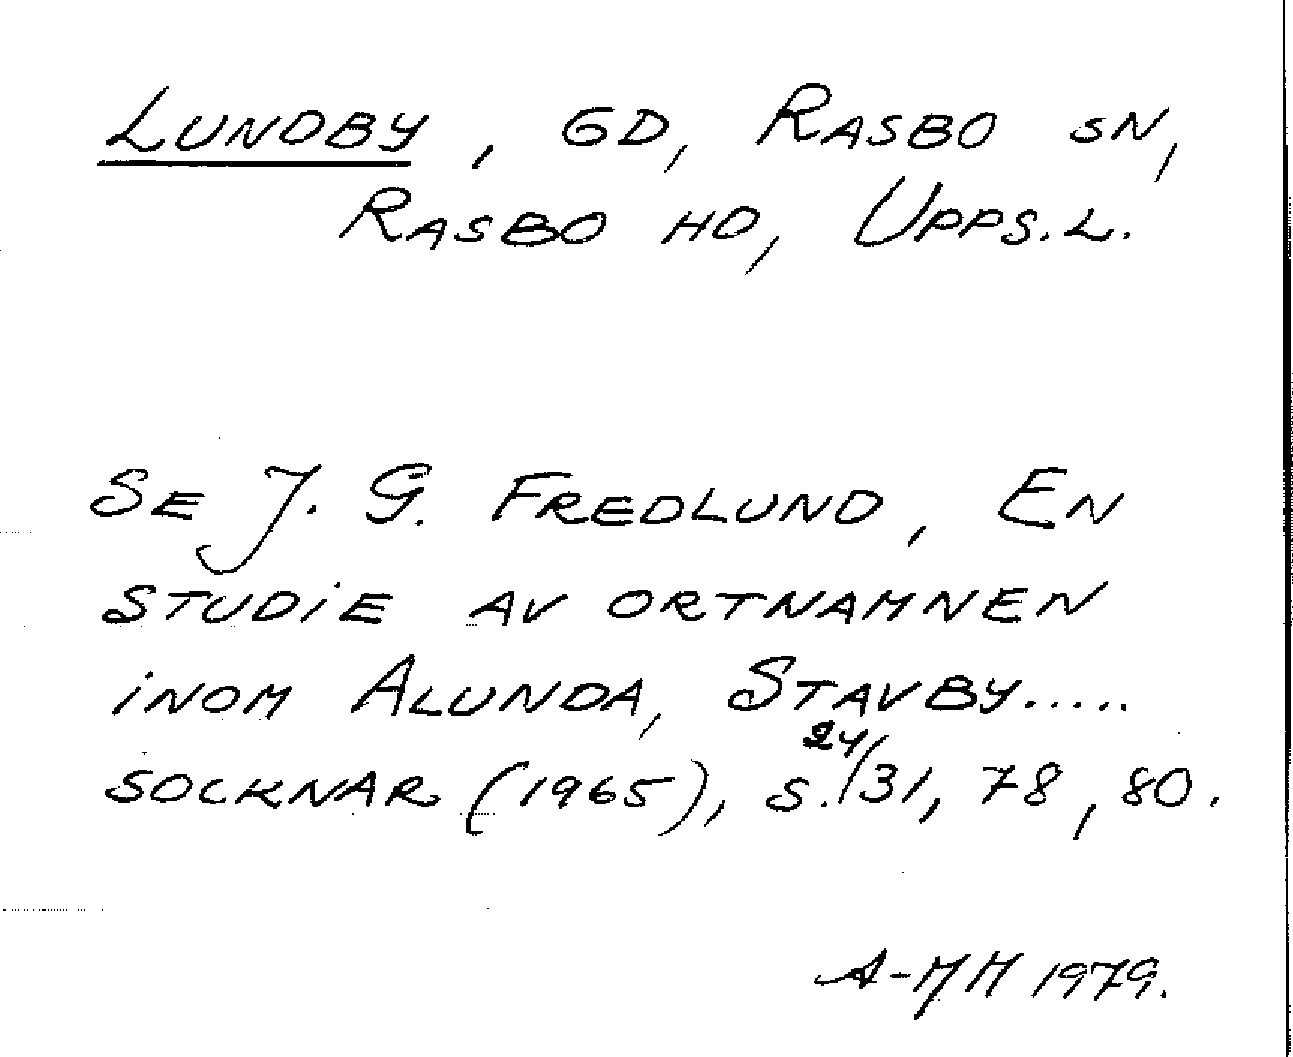 LUNDBY, GD, RASBO SN,
RASBO HD, UPPS.L.
SE J. G. FREDLUND, EN
STUDIE AV ORTNAMNEN
INOM ALUNDA, STAVBY.....
SOCKNAR (1965), S. 24/31, 78, 80.
A-MM 1979.